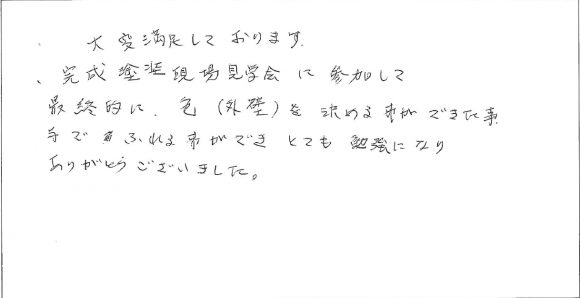 ・ 大変満足しております。
・ 完成塗装現場見学会に参加して
最終的に、色(外壁)を決める事ができた事
手でふれる事ができとても勉強になり
ありがとうございました。